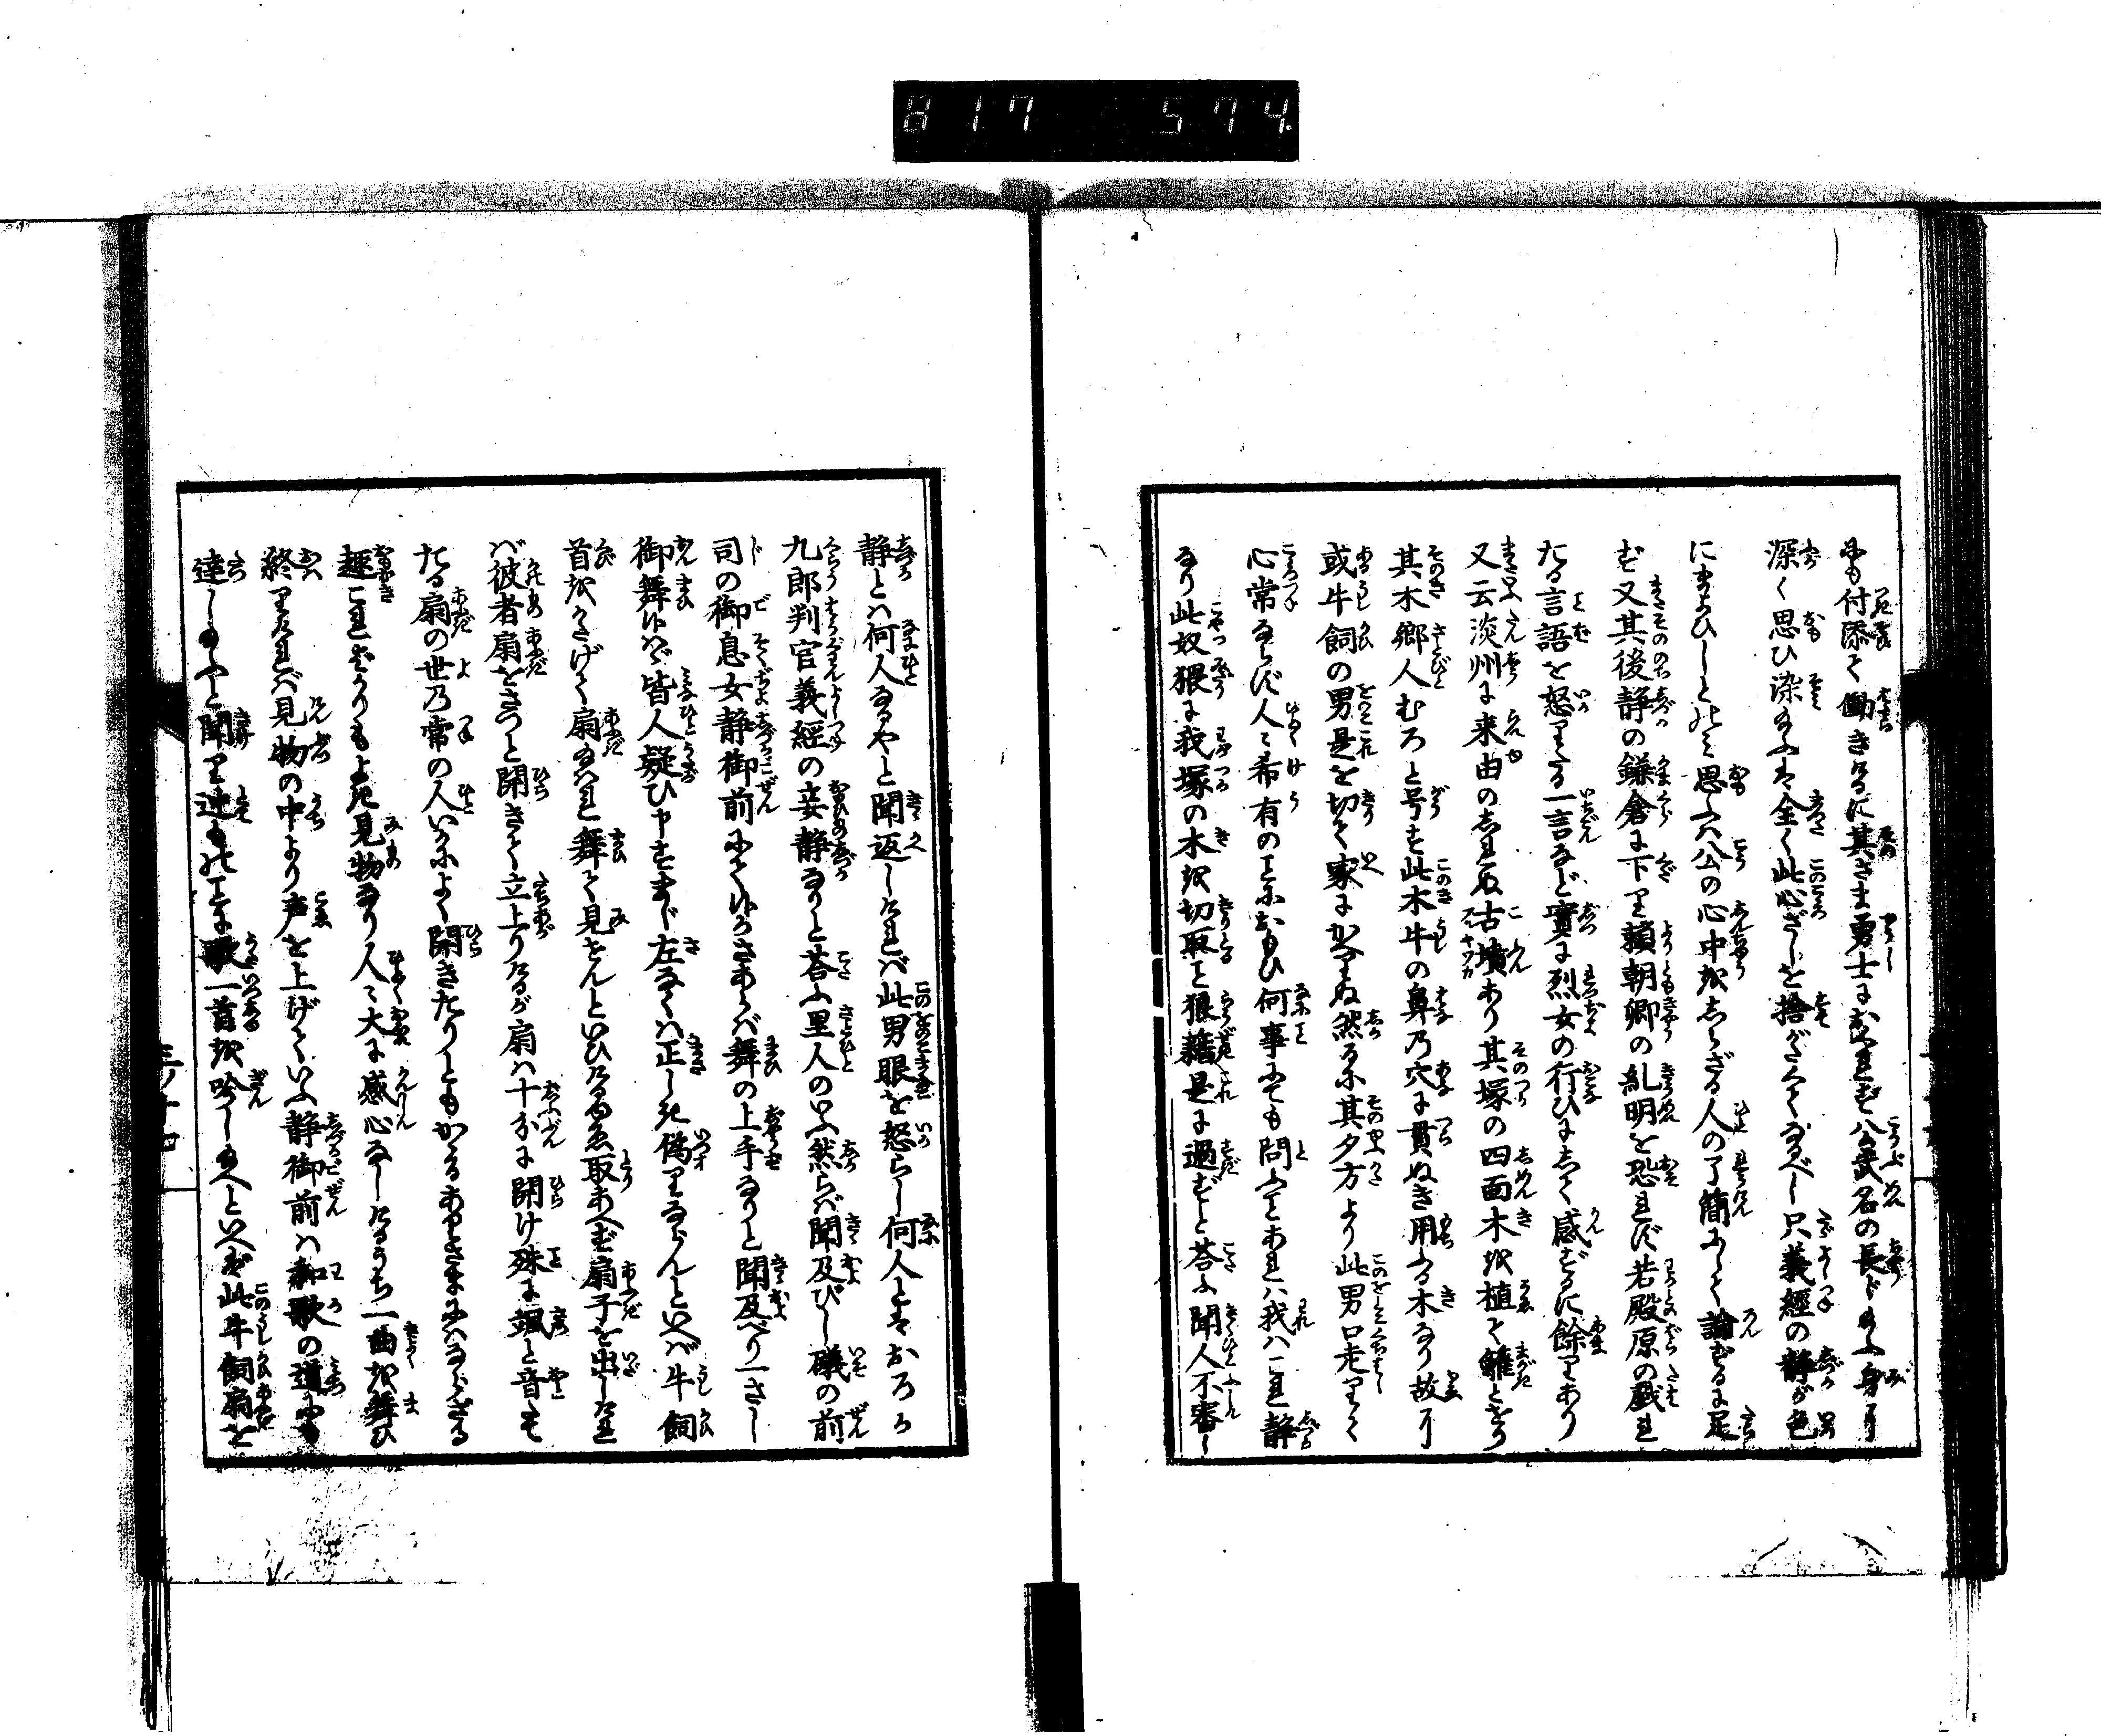 817 574.
にも付添て働きけるに其さま勇士におとれず公武名の長じ給ふ身
深く思ひ染給ふは全く此心ざしを捨がたくなるべし只義經の静が色
にまよひしとのみ思ふハ公の心中をしらざる人の了簡にして論ずるに足
ず又其後静の鎌倉に下り頼朝卿の糺明を恐れず若殿原の戯れ
たる言語を怒りたる一言など實に烈女の行ひにして感ずるに餘りあり
又云淡州に来由のしれぬ古墳あり其塚の四面木を植て籬とせり
其木郷人むろと号す此木牛の鼻乃穴に貫ぬき用ふる木なり故に
或牛飼の男是を切て家にかへりぬ然るに其夕方より此男口走りて
心常ならず人々希有のことにおもひ何事にても問ふことあれハ我ハこれ静
なり此奴猥に我塚の木を切取こと狼藉是に過ずと答ふ聞人不審し
静とハ何人なるやと聞返しければ此男眼を怒らし何人とはおろか
九郎判官義經の妾静なりと答ふ里人のいふ然らば聞及びし礒の前
司の御息女静御前にて候かさあらば舞の上手なりと聞及べり一さし
御舞候へかし皆人疑ひ申すまじ左なくハ正しき偽りならんといへば牛飼
首をさげて扇給ハれ舞て見せんといひけるゆゑ取あへず扇子を出しけれ
バ彼者扇をさつと開きて立上りけるが扇ハ十分に開け殊に颯と音せし
たる扇の世乃常の人いかによく開きたりともかゝるありさまにハならざる
趣こればかりもよき見物なり人々大に感心なしけるうち一曲を舞ひ
終りければ見物の中より声を上げていふ静御前ハ和歌の道にも
達し給ふと聞り迚ものことに歌一首を吟じ給へといへば此牛飼扇を
三ノ十四